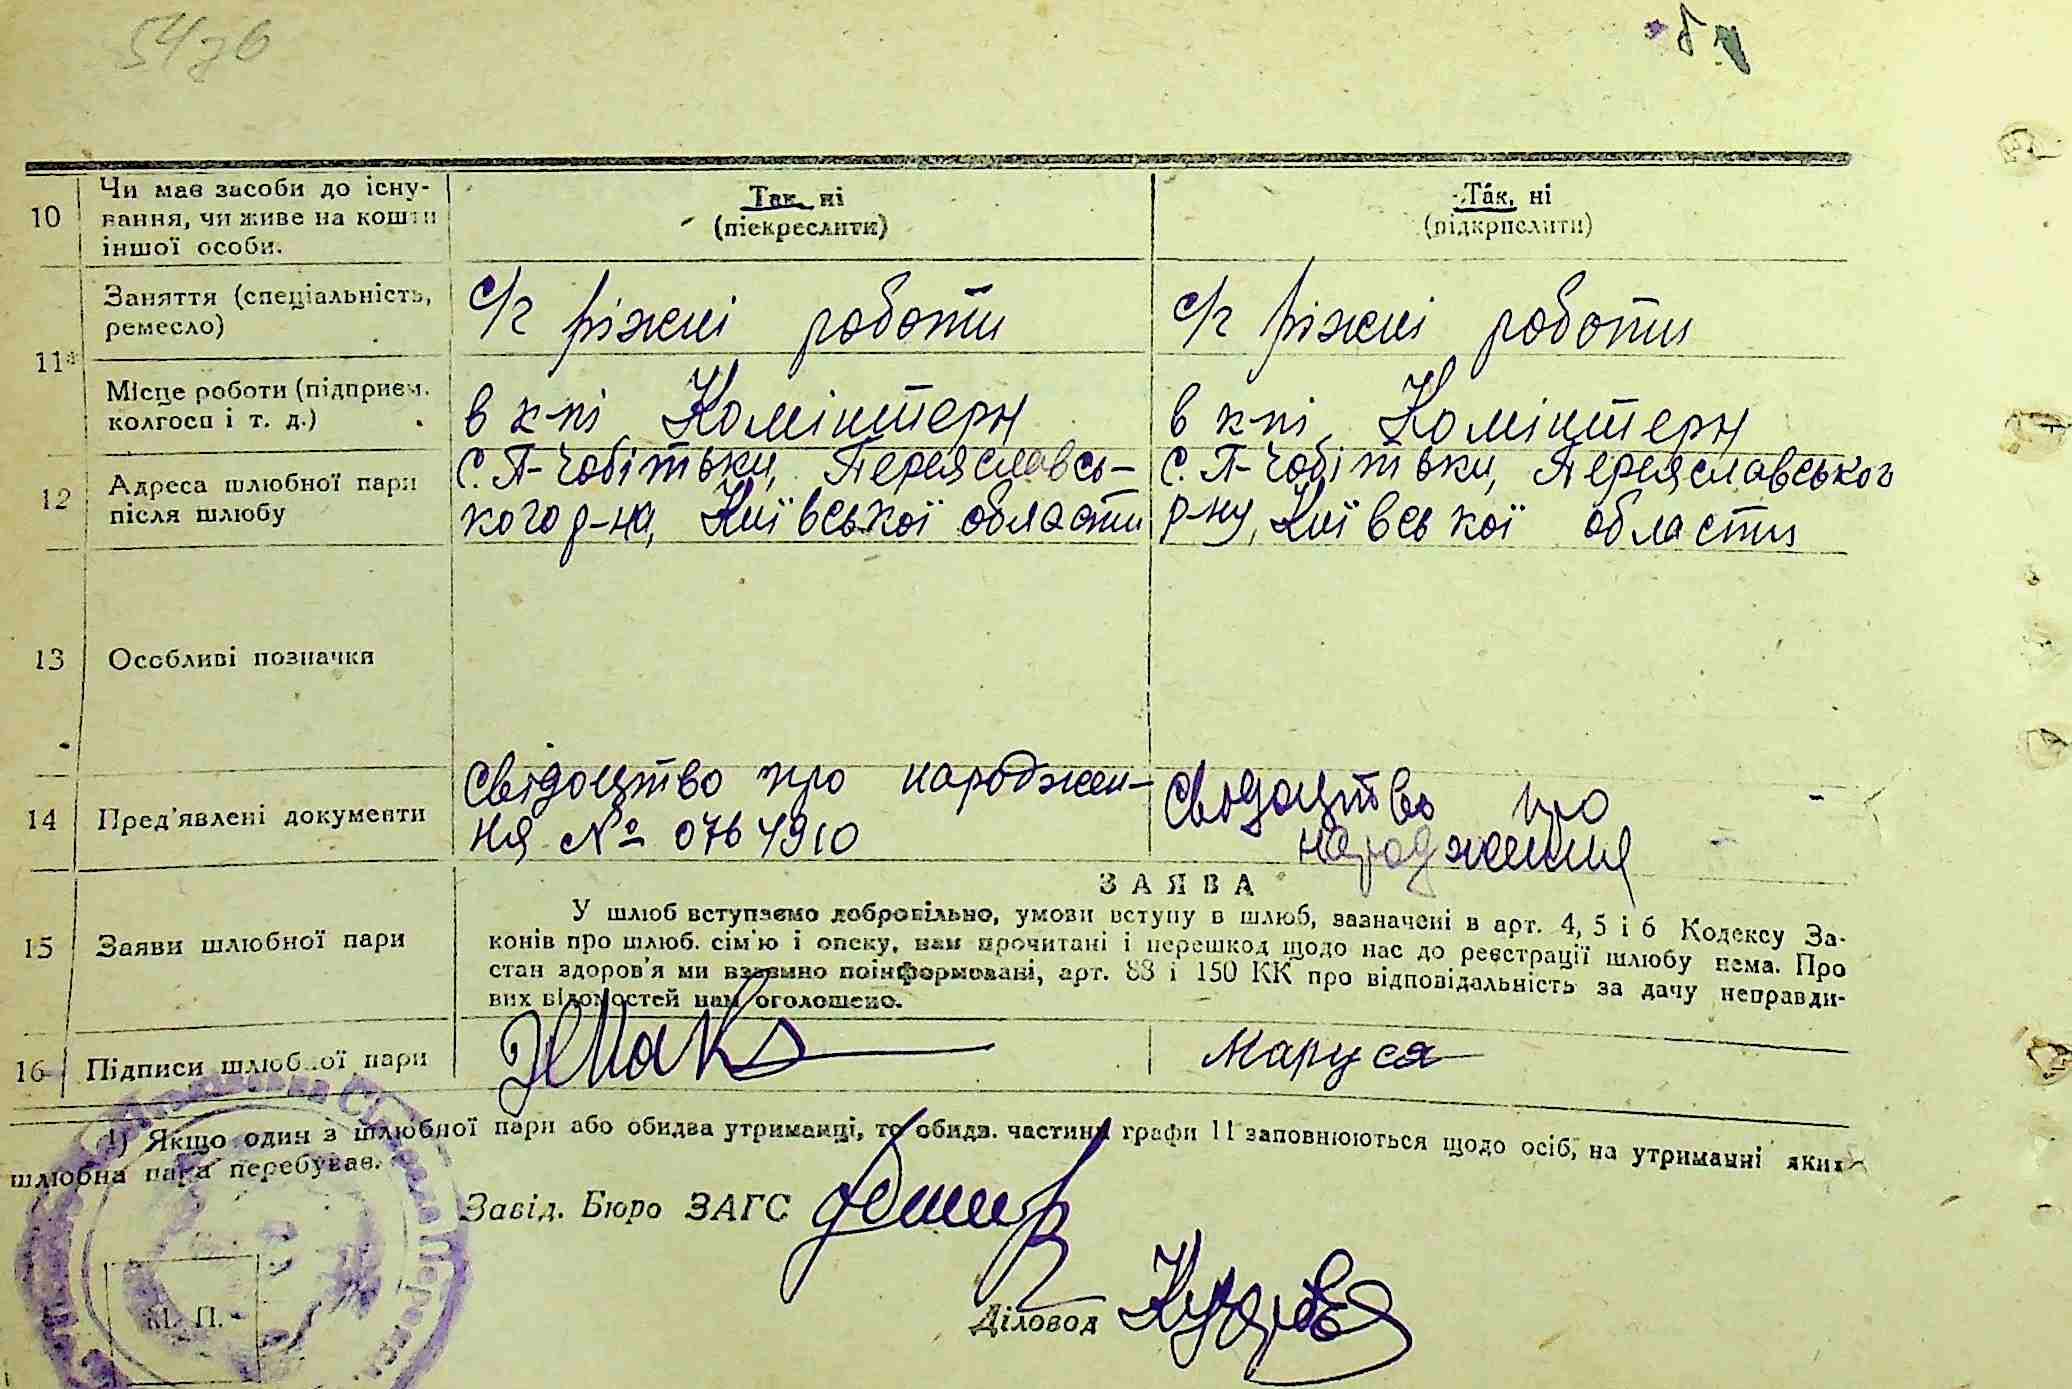 54зв
10 Чи має засоби до існу-
вання, чи живе на кошти
іншої особи.
Так, ні
(піекреслити)
Так, ні
(підкрпслити)
11
Заняття (спеціальність,
ремесло)
с/г ріжні роботи
с/г ріжні роботи
Місце роботи (підприєм.
колгосп і т. д.)
в к-пі Комінтерн
в к-пі Комінтерн
12 Адреса шлюбної пари
після шлюбу
с. П-Чобітьки, Переяславсь-
кого р-на, Київської области
с. П-Чобітьки, Переяславського
р-ну, Київської области
13 Особливі позначки
14 Пред'явлені документи
Свідоцтво про народжен-
ня № 0764910
Свідоцтво про
народження
15 Заяви шлюбної пари
ЗАЯВА
У шлюб вступаємо добровільно, умови вступу в шлюб, зазначені в арт. 4, 5 і 6 Кодексу За-
конів про шлюб. сім'ю і опеку, нам прочитані і перешкод щодо нас до реєстрації шлюбу нема. Про
стан здоров'я ми взаємно поінформовані, арт. 88 і 150 КК про відповідальність за дачу неправди-
вих відомостей нам оголошено.
16 Підписи шлюбної пари
Маруся
1) Якщо один з шлюбної пари або обидва утриманці, то обидв. частини графи 11 заповнюються щодо осіб, на утриманні яких
шлюбна пара перебуває.
Завід. Бюро ЗАГС
Діловод
М. П.